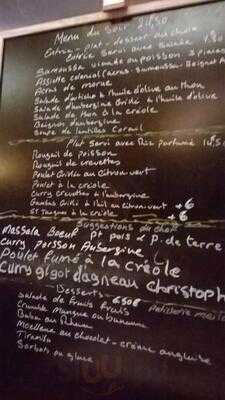 Menu du Jour 21,50
Entrée - plat - dessert au choix
Entrée Servi avec Salade 7.80
Samoussa viande ou poisson 3 pieces
Assiette colonial (Acras - Samoussa - Beignet A
Acras de morue
Salade d'artiche à l'huile d'olive au thon
Salade d'aubergine Grillé à l'huile d'olive
Salade de thon à la créole
Beignets d'aubergine
Soupe de lentilles Corail
Plat servi avec Riz parfumé 14,50
Rougail de poisson
Rougail de crevettes
Poulet Grillé au Citron vert
Poulet à la créole
Curry crevettes à l'aubergine
Gambas Grillé à l'ail au citron vert +6
St Jacques à la créole +6
Suggestions du chef
Massala Boeuf Pt pois & P. de terre
Curry poisson Aubergine
Poulet fumé à la créole
Curry gigot d'agneau christoph
Desserts 6,50€
Salade de Fruits frais
Crumble Mangue ou banane
Baba au Rhum
Moelleux au chocolat - crème anglaise
Tiramisu
Sorbets ou glace